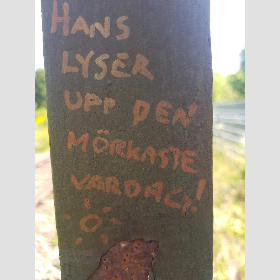 HANS
LYSER
UPP DEN
MÖRKASTE
VARDAG!